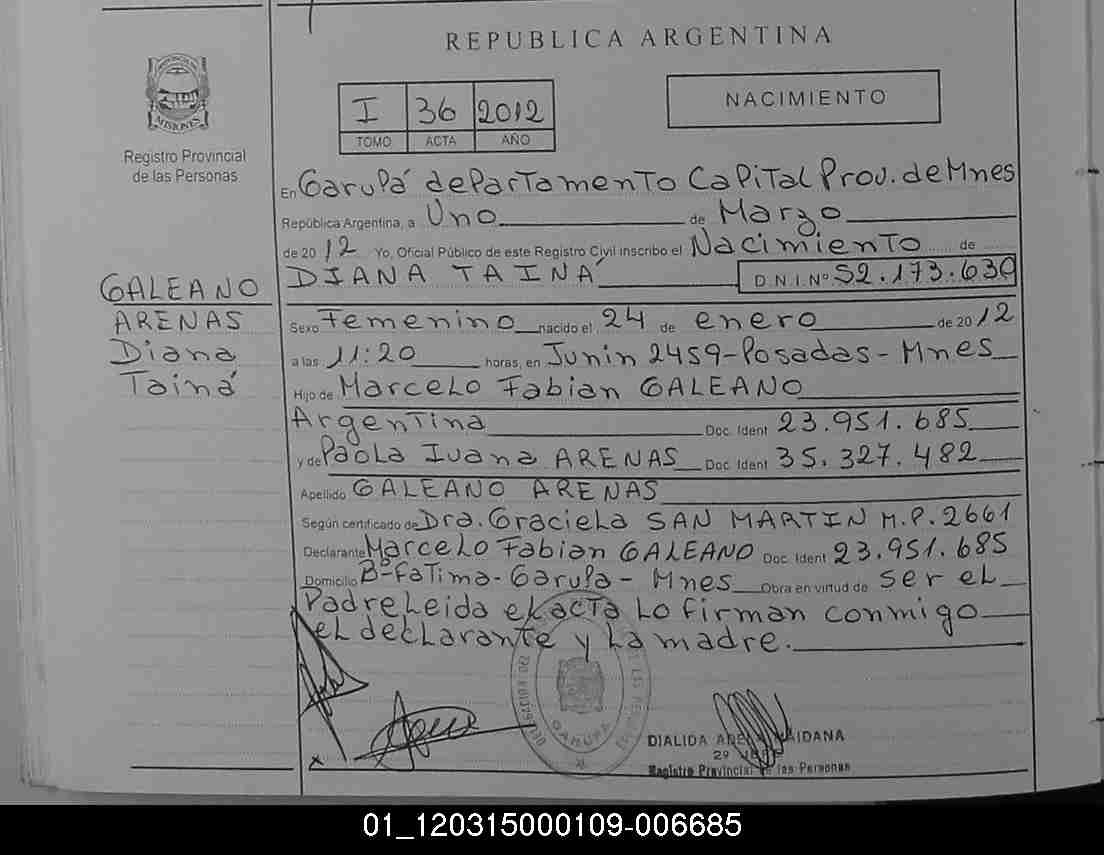 REPUBLICA ARGENTINA
MISIONES
Registro Provincial
de las Personas
I 36 2012
TOMO ACTA AÑO
NACIMIENTO
En Garupá departamento Capital Prov. de Mnes
República Argentina, a Uno de Marzo
de 2012 Yo, Oficial Público de este Registro Civil inscribo el Nacimiento de
DIANA TAINÁ D.N.I. Nº 52.173.630
GALEANO
ARENAS
Diana
Tainá
Sexo Femenino nacido el 24 de enero de 2012
a las 11:20 horas, en Junin 2459-Posadas-Mnes
Hijo de Marcelo Fabian GALEANO
Argentina Doc. Ident 23.951.685
y de Paola Ivana ARENAS Doc. Ident 35.327.482
Apellido GALEANO ARENAS
Según certificado de Dra. Graciela SAN MARTIN M.P.2661
Declarante Marcelo Fabian GALEANO Doc. Ident 23.951.685
Domicilio Bº Fatima-Garupa-Mnes Obra en virtud de ser el
Padre Leida el acta lo firman conmigo
el declarante y la madre.
GARUPA
DIALIDA MAIDANA
Registro Provincial de las Personas
01_120315000109-006685